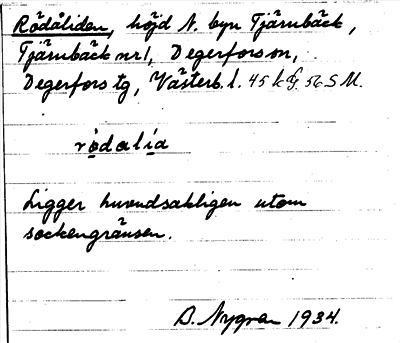 Rödåliden, höjd N. byn Tjärnbäck,
Tjärnbäck nr 1, Degerfors sn,
Degerfors tg, Västerb. l. 45 k G. 56 S M.
rödalía
Ligger huvudsakligen utom
sockengränsen.
D. Nygren 1934.